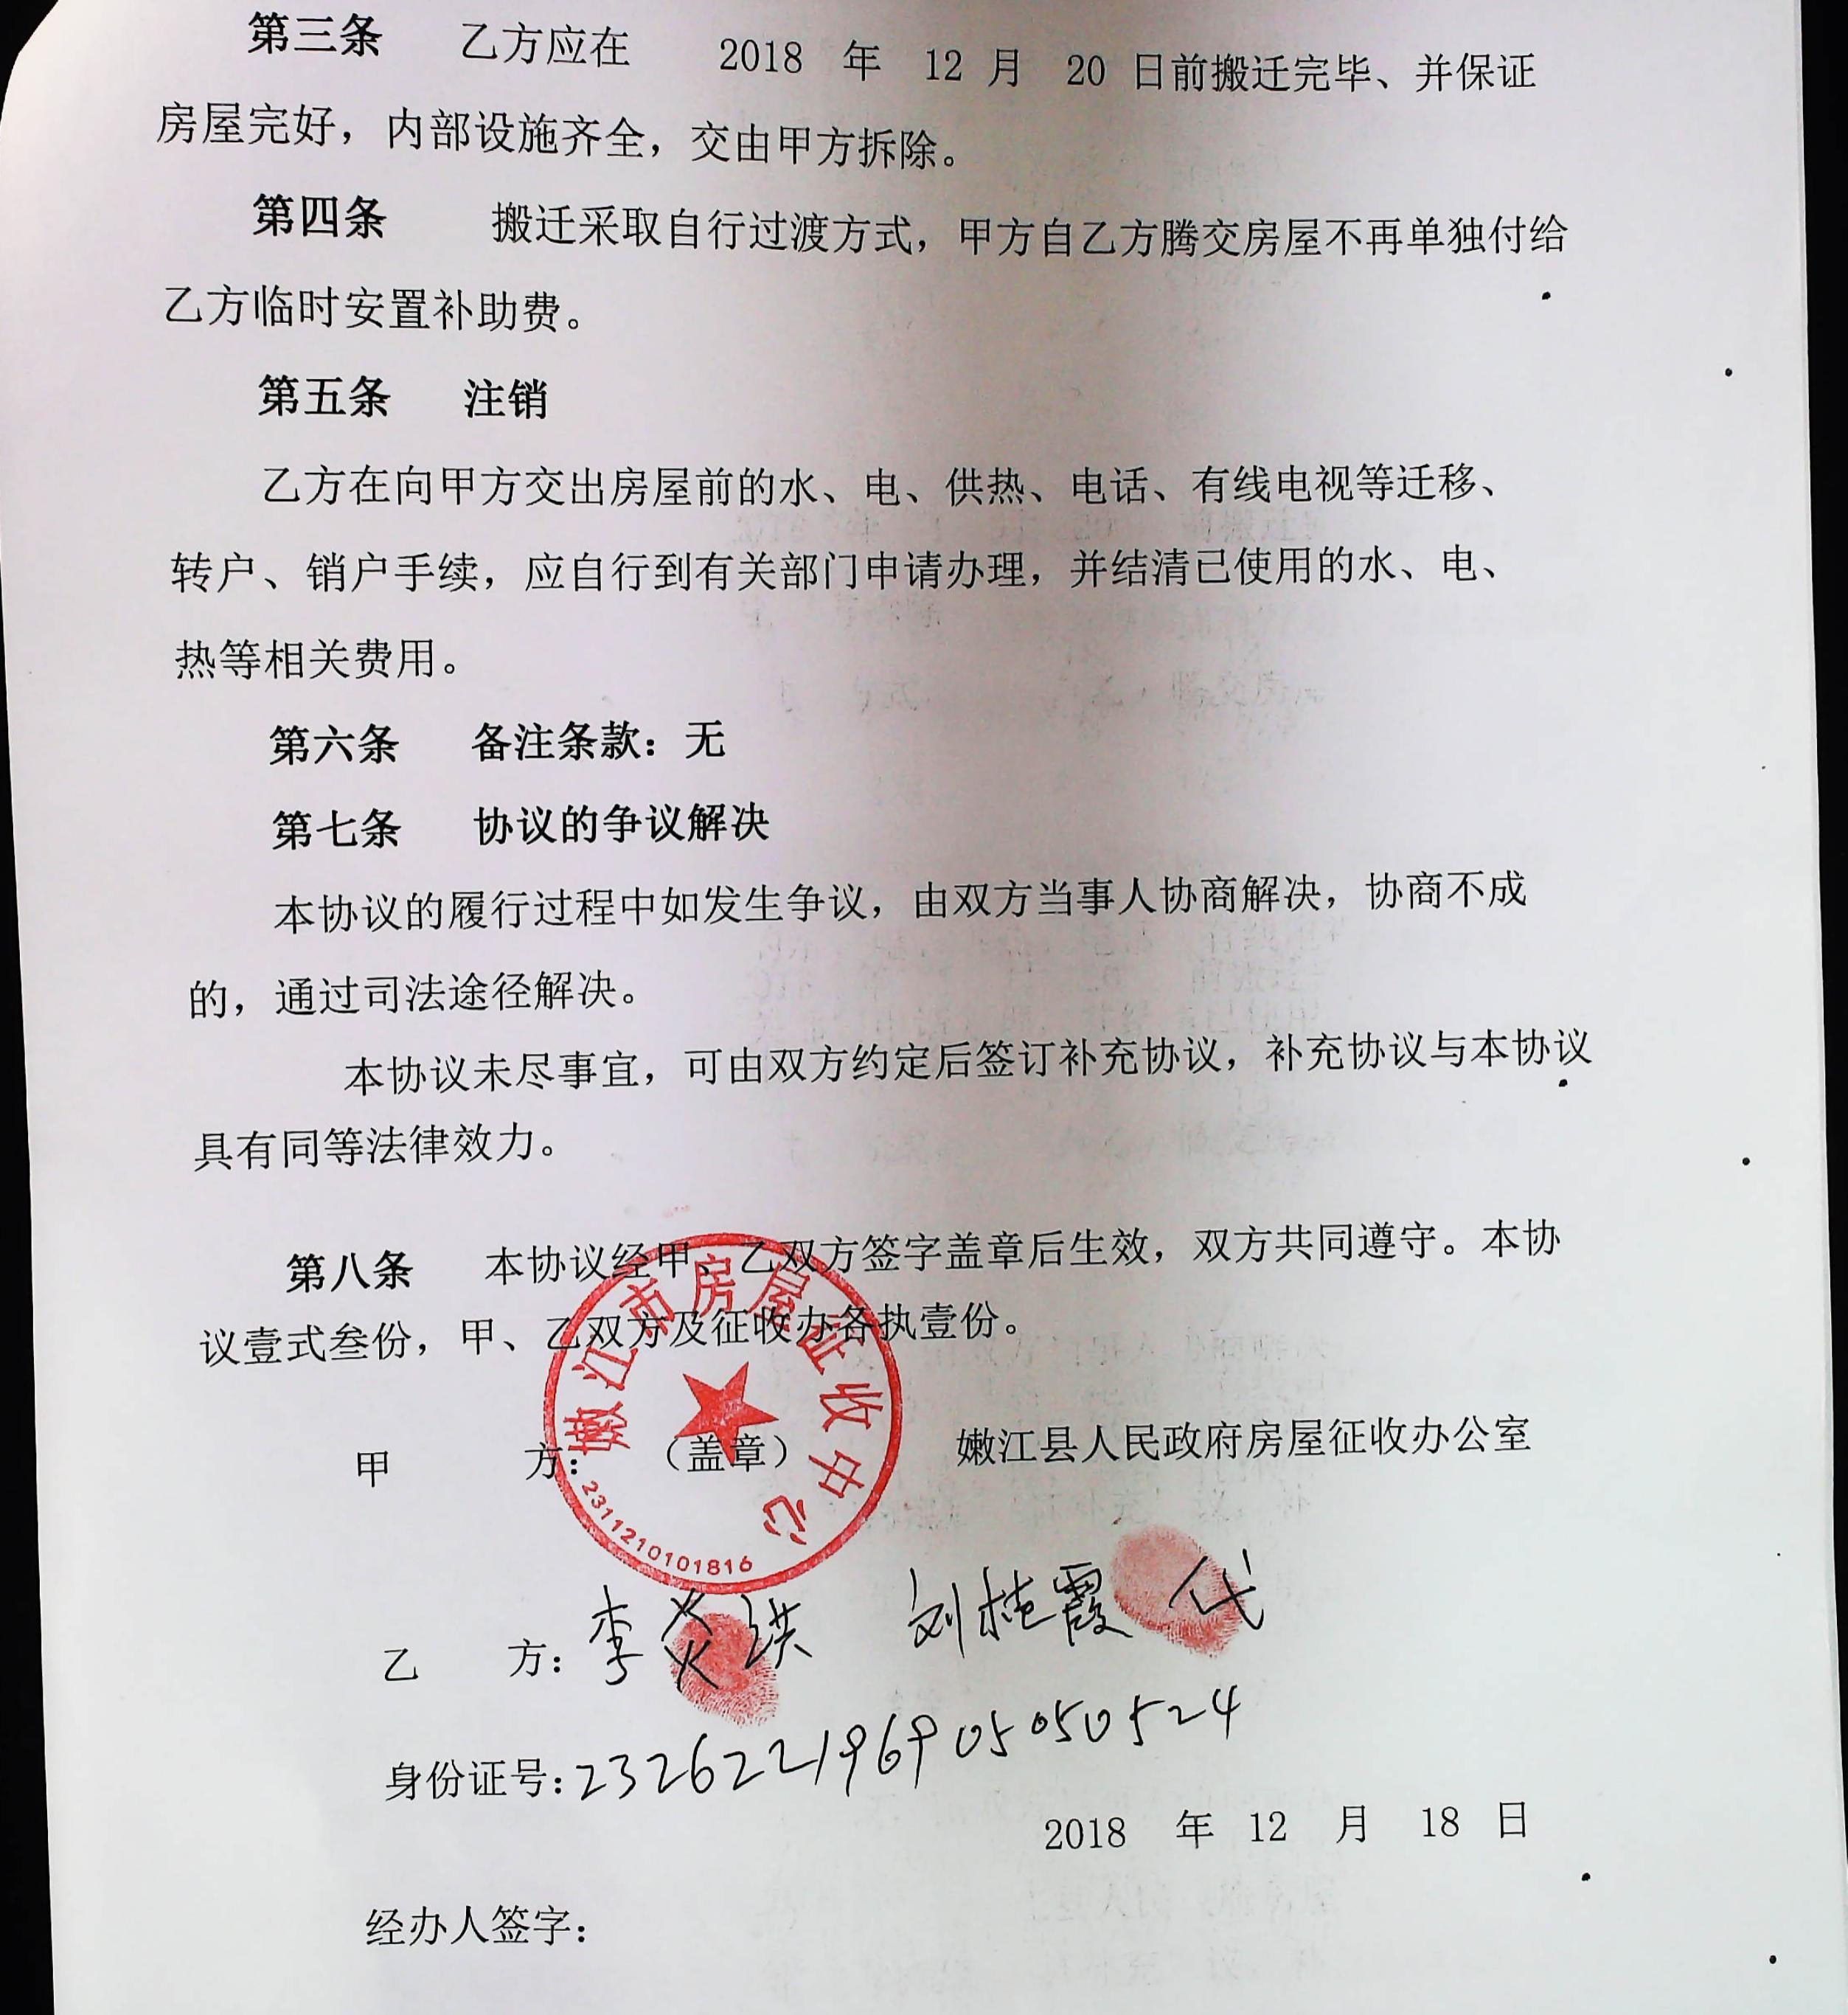 第三条 乙方应在 2018 年 12 月 20 日前搬迁完毕、并保证
房屋完好，内部设施齐全，交由甲方拆除。
第四条 搬迁采取自行过渡方式，甲方自乙方腾交房屋不再单独付给
乙方临时安置补助费。
第五条 注销
乙方在向甲方交出房屋前的水、电、供热、电话、有线电视等迁移、
转户、销户手续，应自行到有关部门申请办理，并结清已使用的水、电、
热等相关费用。
第六条 备注条款：无
第七条 协议的争议解决
本协议的履行过程中如发生争议，由双方当事人协商解决，协商不成
的，通过司法途径解决。
本协议未尽事宜，可由双方约定后签订补充协议，补充协议与本协议
具有同等法律效力。
第八条 本协议经甲、乙双方签字盖章后生效，双方共同遵守。本协
议壹式叁份，甲、乙双方及征收办各执壹份。
嫩江市房屋征收中心
甲 方： （盖章） 嫩江县人民政府房屋征收办公室
2311210101816
乙 方：李炎洪 刘桂霞 代
身份证号：232622196905050524
2018 年 12 月 18 日
经办人签字：